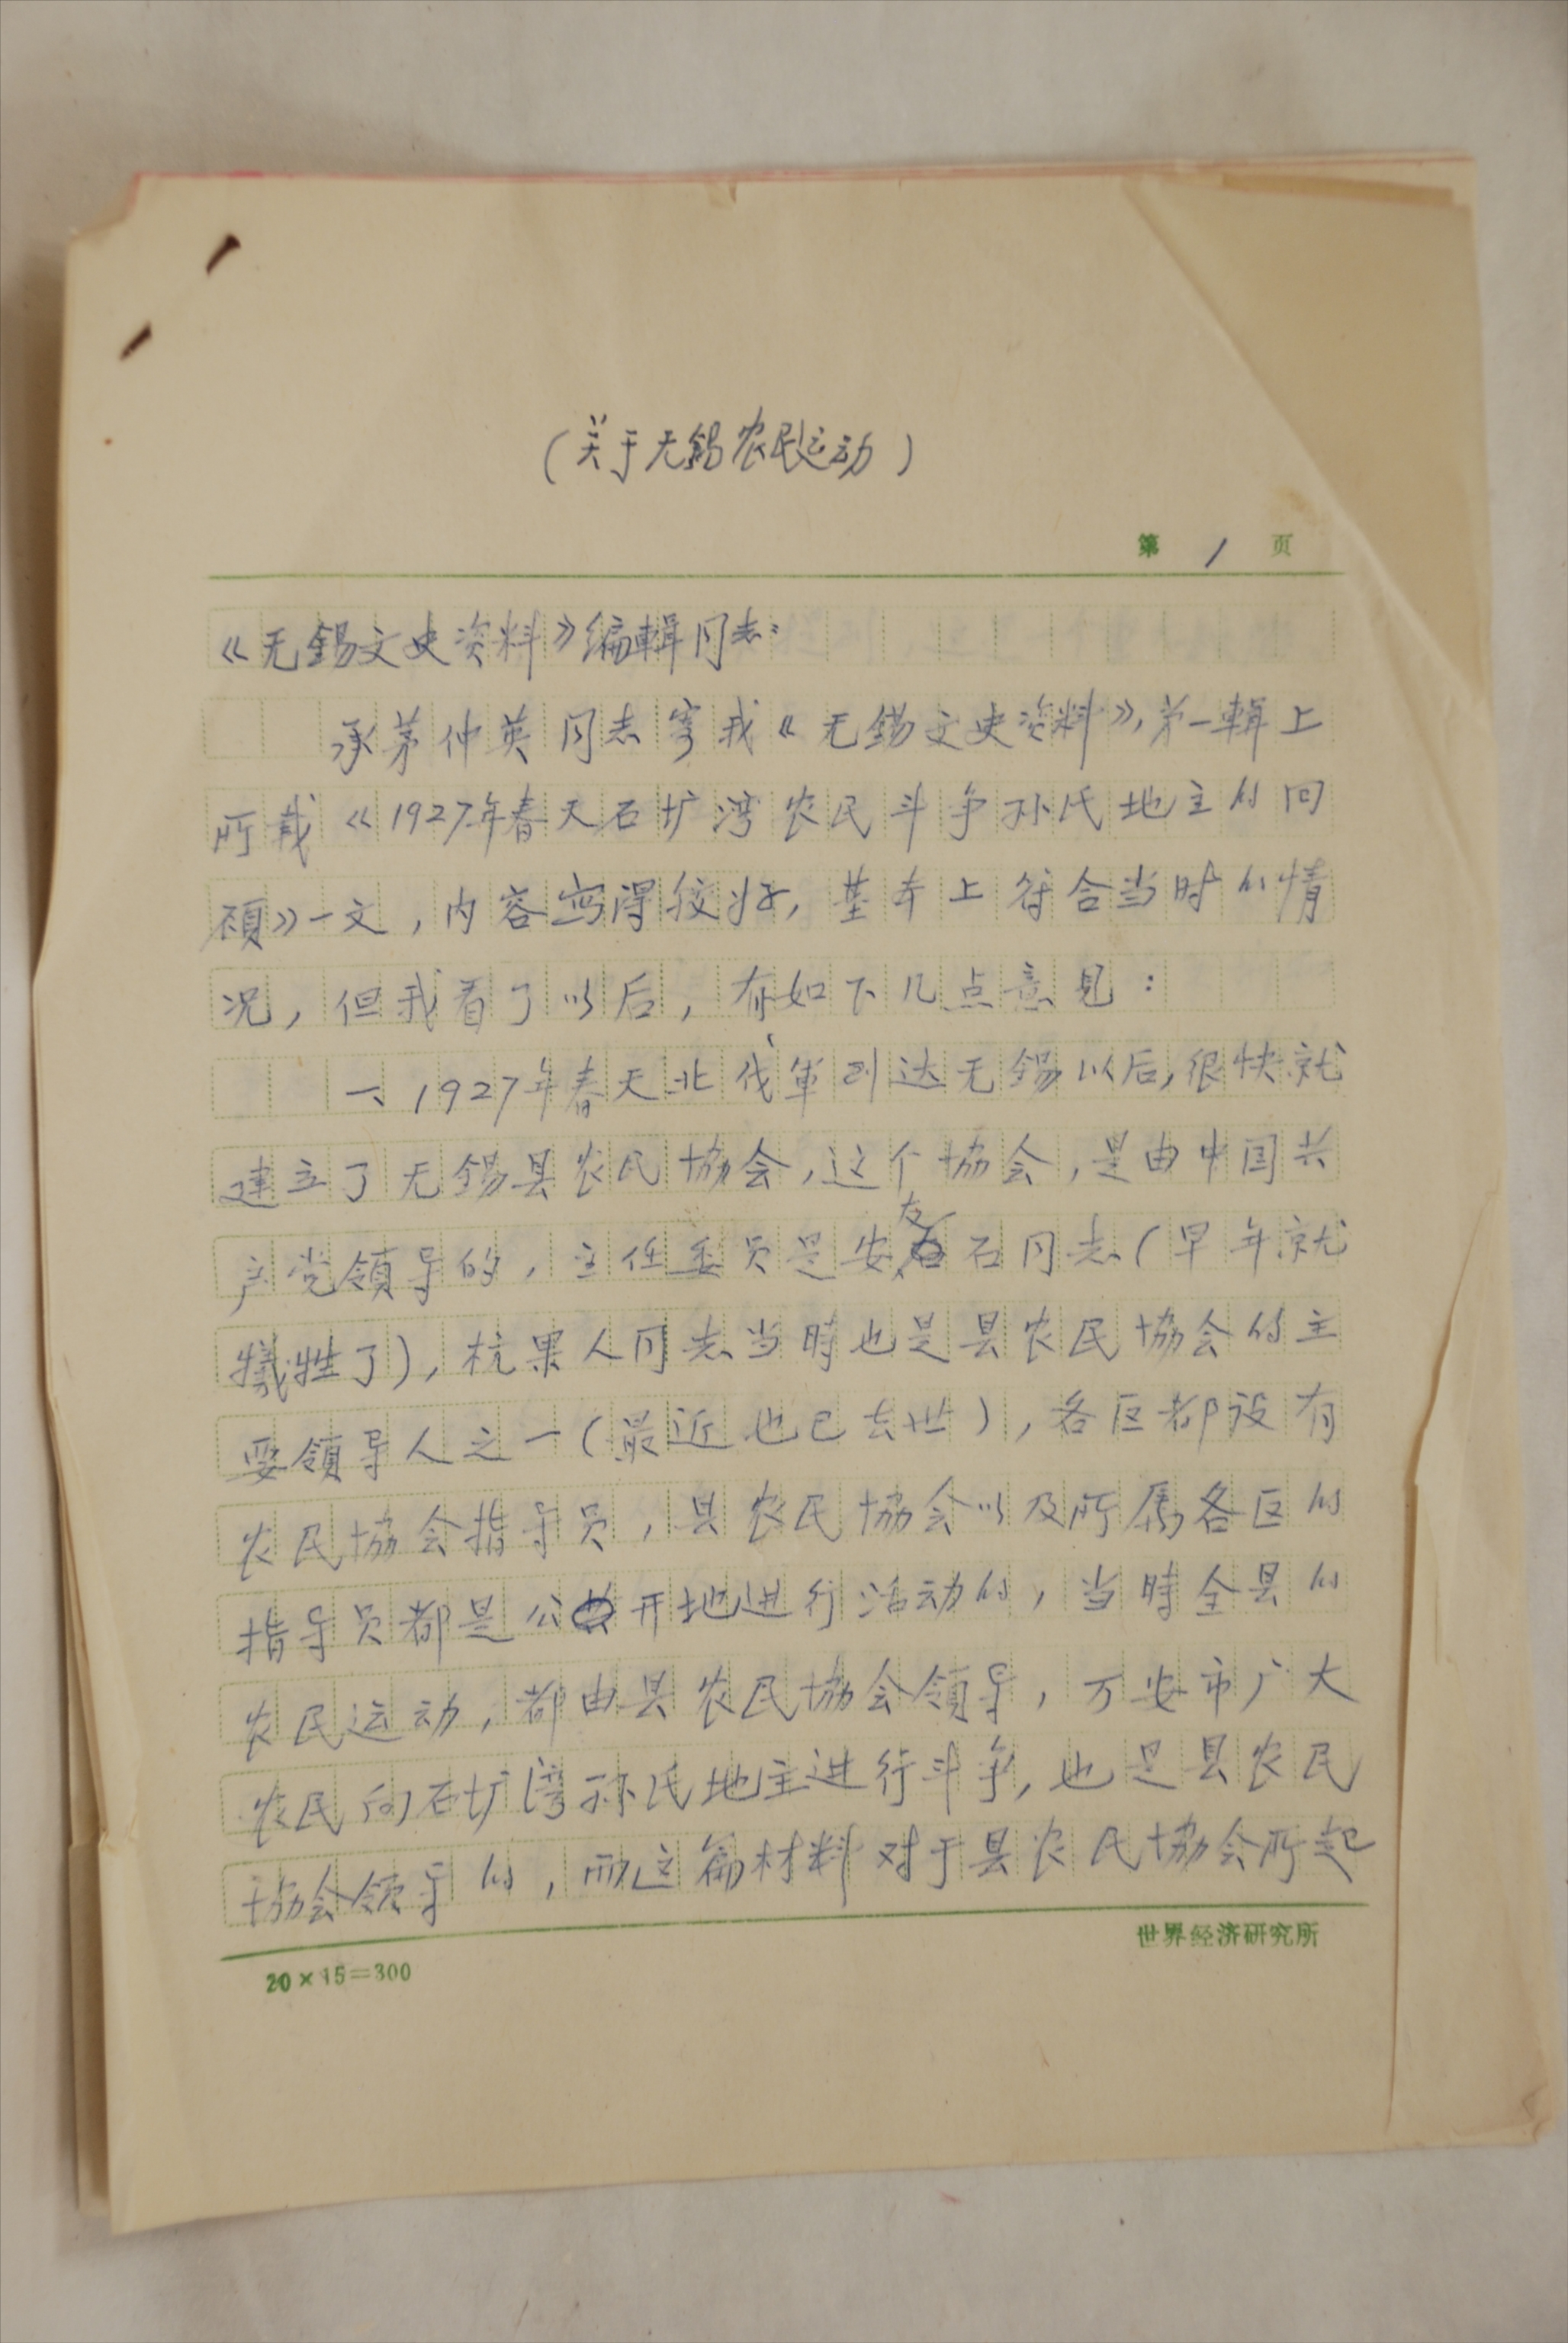 (关于无錫农民运动)
第 1 页
《无錫文史资料》编輯同志:
承茅仲英同志寄我《无錫文史资料》,第一輯上
所载《1927年春天石圹湾农民斗争孙氏地主的回
顾》一文,内容写得较好,基本上符合当时的情
况,但我看了以后,有如下几点意见:
一、1927年春天北伐軍到达无錫以后,很快就
建立了无錫县农民協会,这个協会,是由中国共
产党領导的,主任委员是安友石同志(早年就
犠牲了),杭果人同志当時也是县农民協会的主
要領导人之一(最近也已去世),各区都设有
农民協会指导员,县农民協会以及所属各区的
指导员都是公开地进行活动的,当時全县的
农民运动,都由县农民協会領导,万安市广大
农民向石圹湾孙氏地主进行斗争,也是县农民
協会领导的,而这篇材料对于县农民協会所起
20×15=300
世界经济研究所